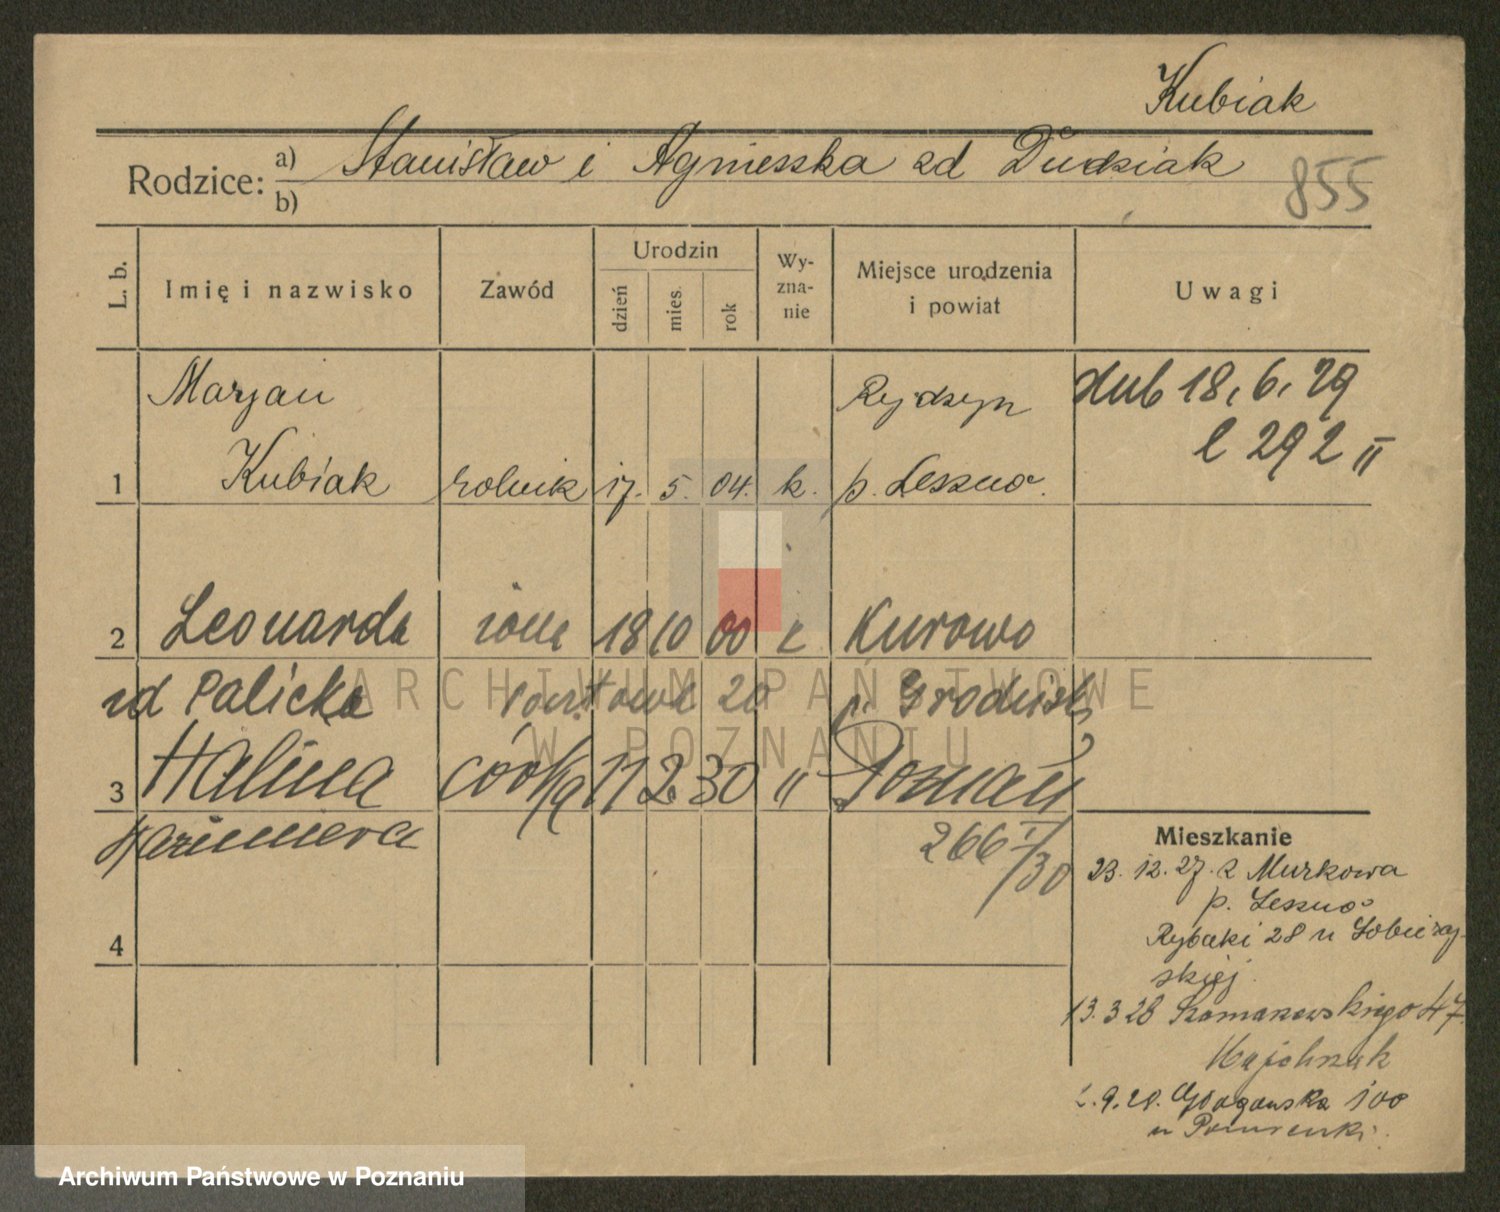 Kubiak
Rodzice: a) Stanisław i Agnieszka zd Dudziak
b)
855
L. b.
Imię i nazwisko
Zawód
Urodzin
dzień
mies.
rok
Wy-
zna-
nie
Miejsce urodzenia
i powiat
Uwagi
Marjan Rydzyn dub 18,6,29
l 292 II
1 Kubiak rolnik 17. 5. 04. k. p. Leszno.
2 Leonarda żona 18 10 00 k Kurowo
zd Palicka 20 p. Grodzisk
3 Halina córka 11 2 30 " Poznań
Kazimiera 266 I/30
4
Mieszkanie
23. 12. 27. z Murkowa
p. Leszno
Rybaki 28 u
skiej
13. 3 28 47
100
u
ARCHIWUM PAŃSTWOWE
W POZNANIU
Archiwum Państwowe w Poznaniu